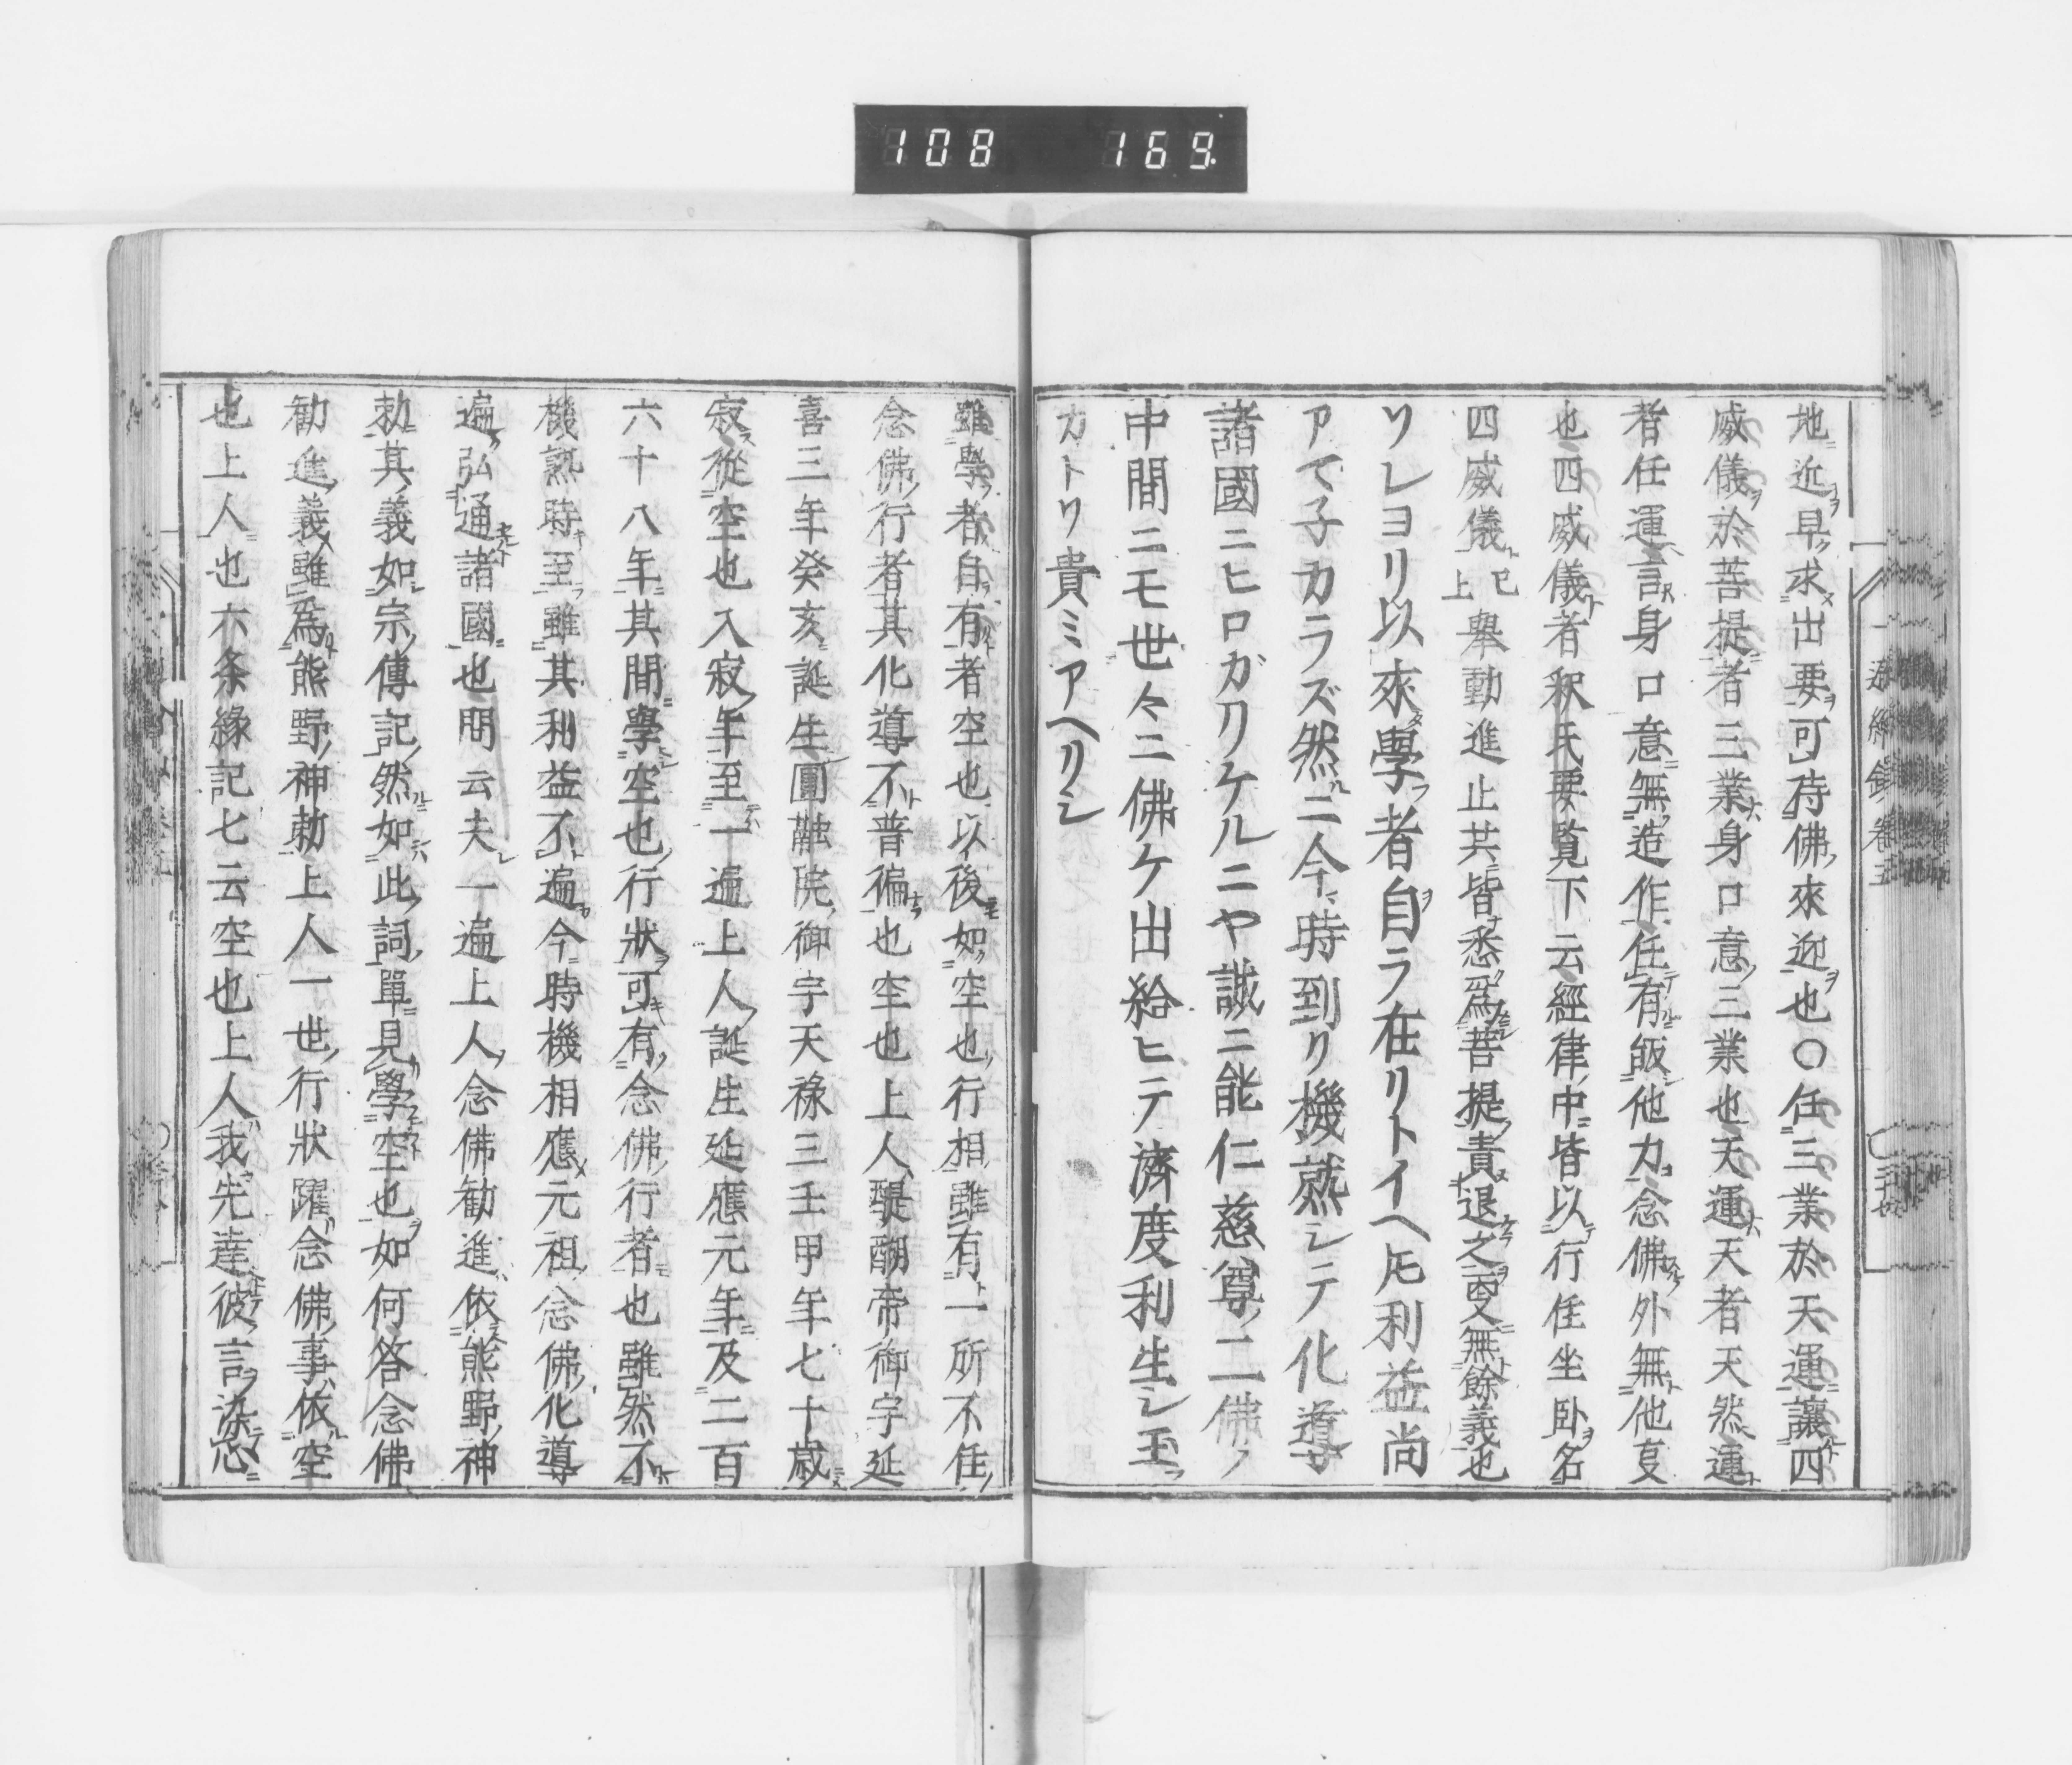 108 169.
地近早求出要可待佛來迎也○任三業於天運讓四
威儀於菩提者三業身口意三業也天運天者天然運
者任運言身口意無造作任有皈他力念佛外無他叓
也四威儀者釈氏要覧下云經律中皆以行住坐卧名
四威儀已上舉動進止其皆悉爲菩提責退之叓無餘義也
ソレヨリ以來學者自ラ在リトイヘ𪜈利益尚
アマ子カラズ然ニ今時到リ機熟シテ化導
諸國ニヒロガリケルニヤ誠ニ能仁慈尊二佛ノ
中間ニモ世々ニ佛ケ出給ヒテ濟度利生シ玉フ
カトソ貴ミアヘリシ
雖學者自有者空也以後如空也行相雖有一所不住
念佛行者其化導不普徧也空也上人醍醐帝御宇延
喜三年癸亥誕生圓融院御宇天祿三壬甲年七十歳
寂從空也入寂年至一遍上人誕生延應元年及二百
六十八年其間學空也行狀可有念佛行者也雖然不
機熟時至雖其利益不遍今時機相應元祖念佛化導
遍弘通諸國也問云夫一遍上人念佛勧進依熊野神
勅其義如宗傳記然如此詞單見學空也如何答念佛
勧進義雖爲熊野神勅上人一世行狀躍念佛事依空
也上人也六条緣記七云空也上人我先達彼言染心